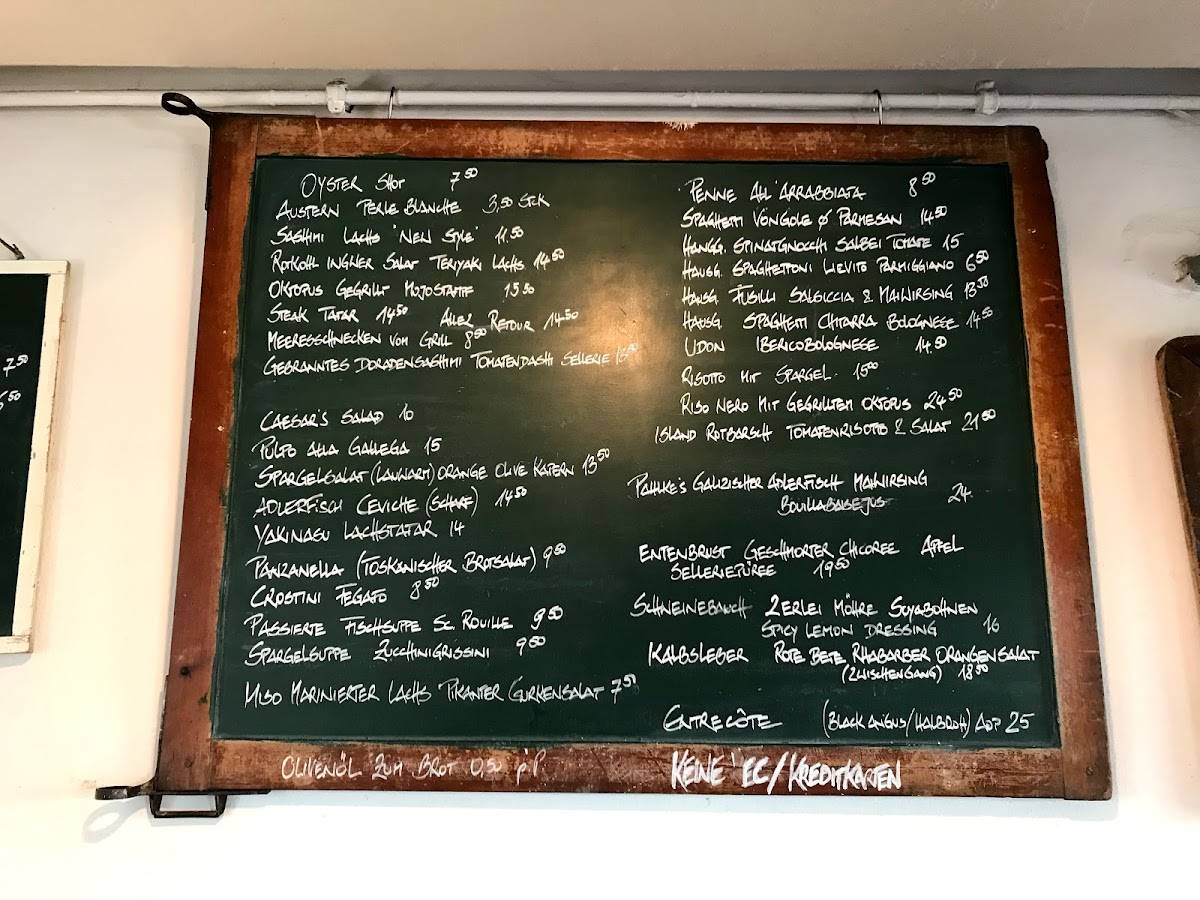 OYSTER SHOT 7 50
AUSTERN PERLE BLANCHE 3,50 STCK
SASHIMI LACHS 'NEW STYLE' 11.50
ROTKOHL INGWER SALAT TERIYAKI LACHS 14 50
OKTOPUS GEGRILLT MOJOSTAMPF 15 50
STEAK TATAR 14 50 ALLER RETOUR 14 50
MEERESSCHNECKEN VOM GRILL 8 50
GEBRANNTES DORADENSASHIMI TOMATENDASHI SELLERIE
CAESAR'S SALAD 10
PULPO ALLA GALLEGA 15
SPARGELSALAT (LAUWARM) ORANGE OLIVE KAPERN 13 50
ADLERFISCH CEVICHE (SCHARF) 14 50
YAKINASU LACHSTATAR 14
PANZANELLA (TOSKANISCHER BROTSALAT) 9 50
CROSTINI FEGATO 8 50
PASSIERTE FISCHSUPPE SC. ROUILLE 9 50
SPARGELSUPPE ZUCCHINIGRISSINI 9 50
MISO MARINIERTER LACHS PIKANTER GURKENSALAT 7 50
OLIVENÖL ZUM BROT 0,50 p.P.
PENNE ALL'ARRABBIATA 8 50
SPAGHETTI VONGOLE Ø PARMESAN 14 50
HAUSG. SPINATGNOCCHI SALBEI TOMATE 15
HAUSG. SPAGHETTONI LIEVITO PARMIGGIANO 6 50
HAUSG. FUSILLI SALSICCIA & MAIWIRSING 13 50
HAUSG. SPAGHETTI CHITARRA BOLOGNESE 14 50
UDON IBERICOBOLOGNESE 14 50
RISOTTO MIT SPARGEL 15 00
RISO NERO MIT GEGRILLTEM OKTOPUS 24 50
ISLAND ROTBARSCH TOMATENRISOTTO & SALAT 21 50
PAHLKE'S GALIZISCHER ADLERFISCH MAIWIRSING
BOUILLABAISEJUS 24.
ENTENBRUST GESCHMORTER CHICOREE APFEL
SELLERIEPÜREE 19 50
SCHWEINEBAUCH 2ERLEI MÖHRE SOYABOHNEN
SPICY LEMON DRESSING 16
KALBSLEBER ROTE BETE RHABARBER ORANGENSALAT
(ZWISCHENGANG) 18 50
ENTRECÔTE (BLACK ANGUS/HALBROH) ADP 25
KEINE EC/KREDITKARTEN
7 50
50